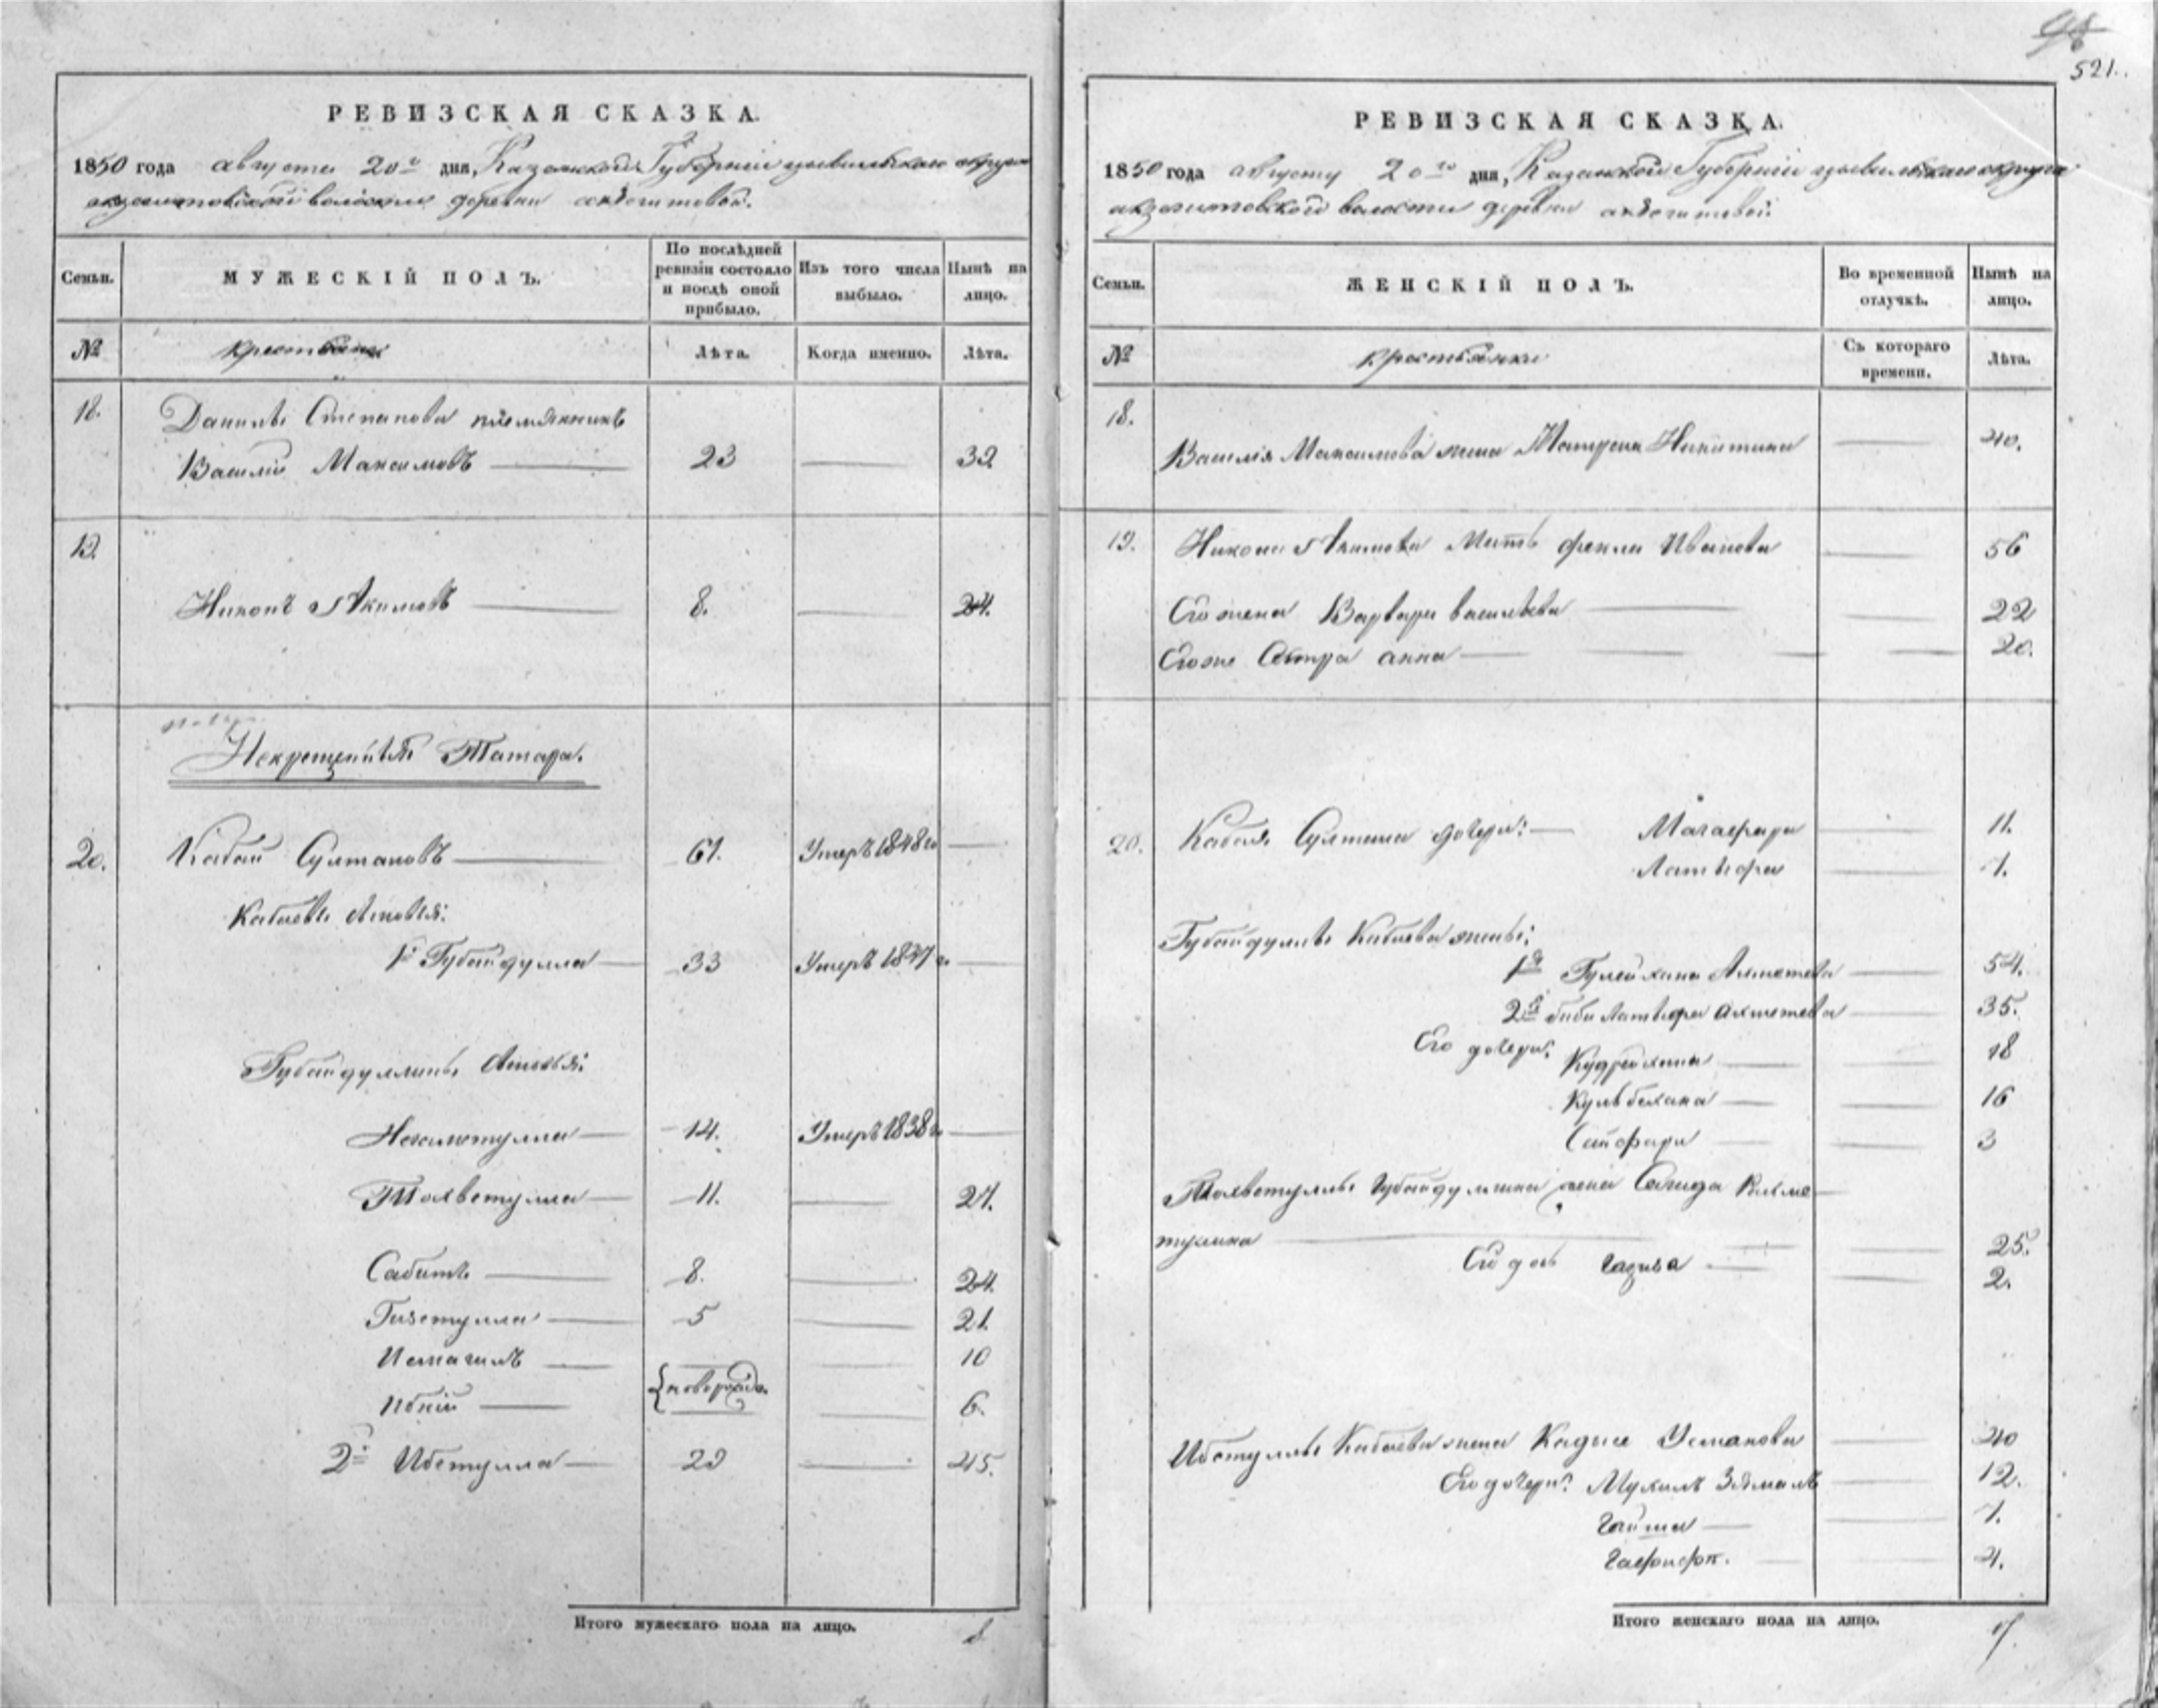 98
521.
РЕВИЗСКАЯ СКАЗКА.
1850 года августа 20го дня, Казанской Губерніи цывильскаго округа
волости деревни
Семьи.
МУЖЕСКІЙ ПОЛЪ.
По послѣдней ревизіи состояло и послѣ оной прибыло.
Изъ того числа выбыло.
Нынѣ на лицо.
№
крестьяне
Лѣта.
Когда именно.
Лѣта.
18.
Данилы Степанова племянникъ
Василій Максимовъ — 23 — 32
19.
Никонъ Акимовъ — 8. — 24.
Некрещенныя Татара.
20. Кабай Султановъ — 61. Умеръ 1848го —
Кабаевы сыновья:
1й Губайдулла — 33 Умеръ 1837го —
Губайдуллины сыновья:
Негаметулла — 14. Умеръ 1838го —
Тохветулла — 11. — 27.
Сабитъ — 8. — 24.
Гизетулла — 5 — 21.
Исмагилъ — 10
{новорожд.
— 6.
2й Ибетулла — 29 — 45.
Итого мужескаго пола на лицо. 8
РЕВИЗСКАЯ СКАЗКА.
1850 года августа 20го дня, Казанской Губерніи цывильскаго округа
волости деревни
Семьи.
ЖЕНСКІЙ ПОЛЪ.
Во временной отлучкѣ.
Нынѣ на лицо.
№
крестьянки
Съ котораго времени.
Лѣта.
18.
Василія Максимова жена Матрена Никитина — 40.
19. Никона Акимова мать фекла Иванова — 56
Его жена Варвара васильева — 22
Его же Сестра анна — 20.
20. Кабая Султанова дочери: — 11.
Латыфа — 7.
Губайдуллы Кабаева жены:
1я Ахметева — 54.
2я биби латыфа ахметева — 35.
Его дочери: — 18
— 16
— 3
Тохветуллы Губайдуллина жена Сагида Рахме-
тулина — 25.
Его дочь — 2.
Ибетуллы Кабаева жена Усманова — 40
Его дочери: — 12.
Гайша — 7.
— 4.
Итого женскаго пола на лицо. 17.